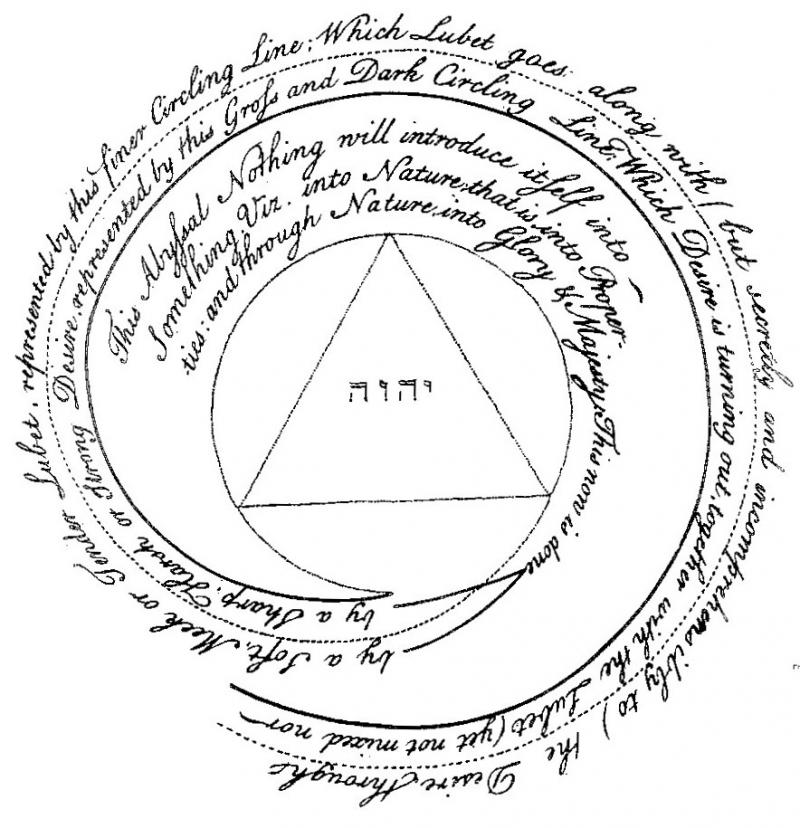 This Abyſsal Nothing will introduce it ſelf into
Something Viz. into Nature, that is into Proper-
ties: and through Nature into Glory & Majesty: This now is done
by a Sharp, Harsh or Strong Desire, represented by this Groſs and Dark Circling Line; Which Desire is turning out, together with the Lubet (yet not mixed nor
by a Soft, Meek or Tender Lubet, represented by this finer Circling Line; Which Lubet goes along with (but secretly and incomprehensibly to) the Desire through
יהוה